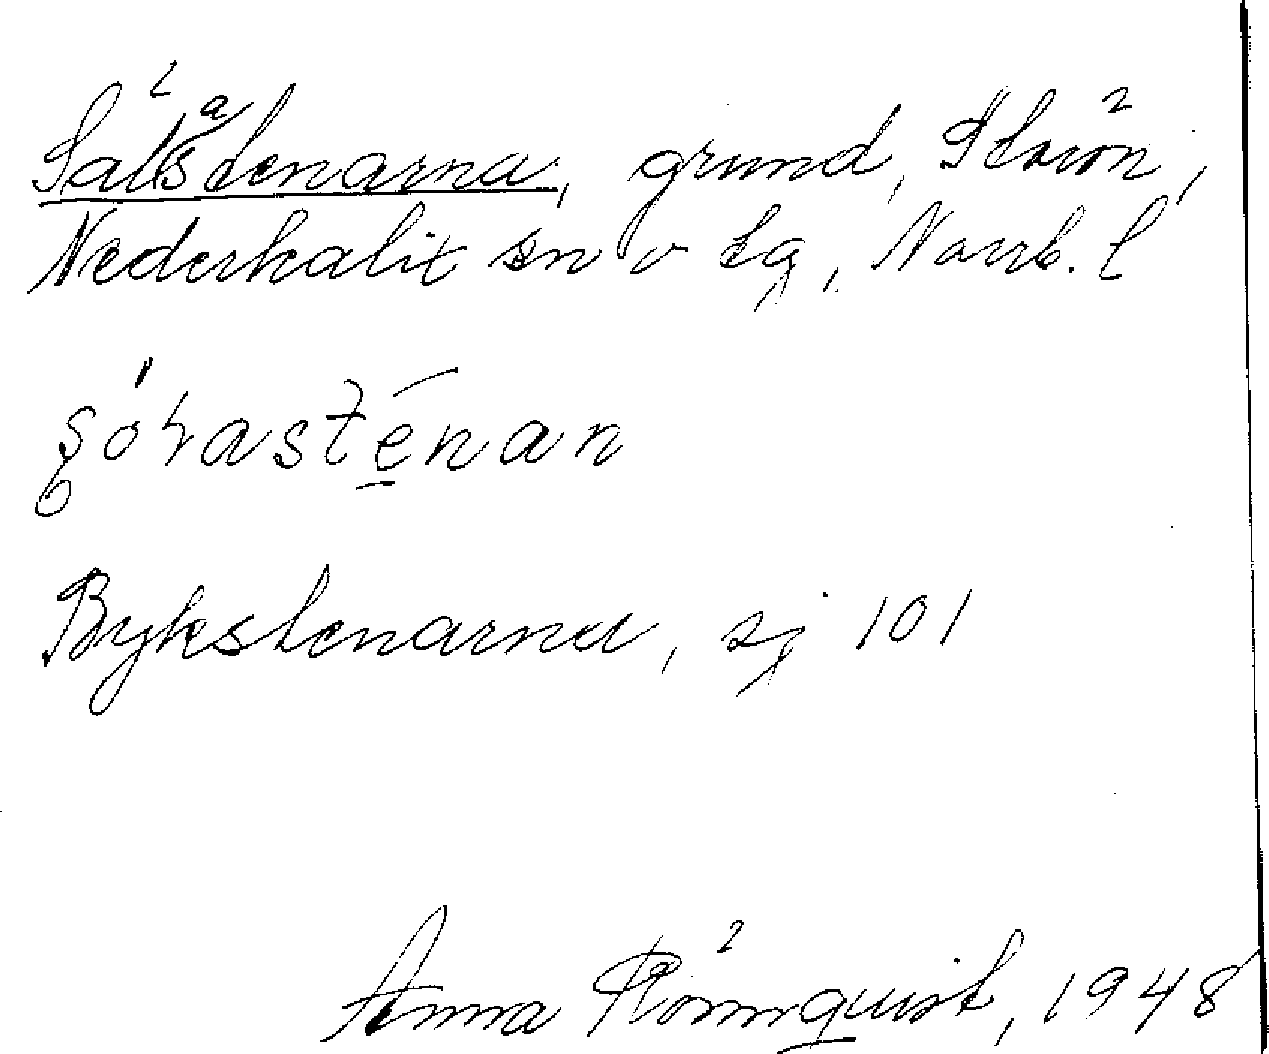 Saltastenarna, grund, Storön,
Nederkalix sn o tg, Norrb. l
Rykstenarna, sj 101
Anna Rönnquist, 1948